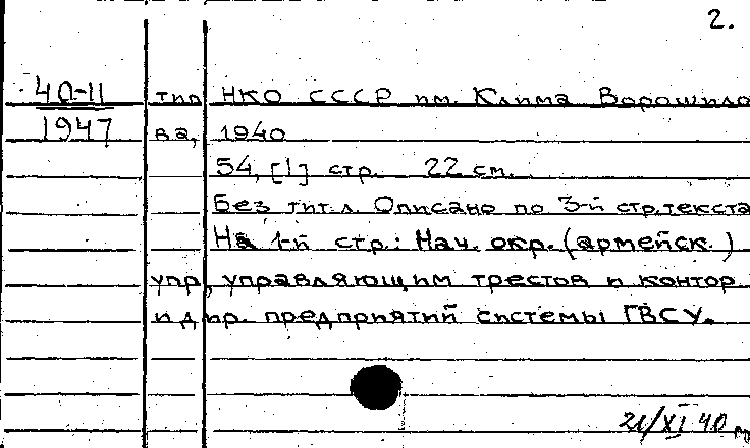 2.
40-11 тип НКО СССР им. Клима Ворошило
1947 ва, 1940
54, [1] стр. 22 см.
Без тит. л. Описано по 3-й стр. текста
На 1-й стр.: Нач. окр. (армейск.)
упр, управляющим трестов и контор
и др. предприятий системы ГВСУ.
21/XI 40